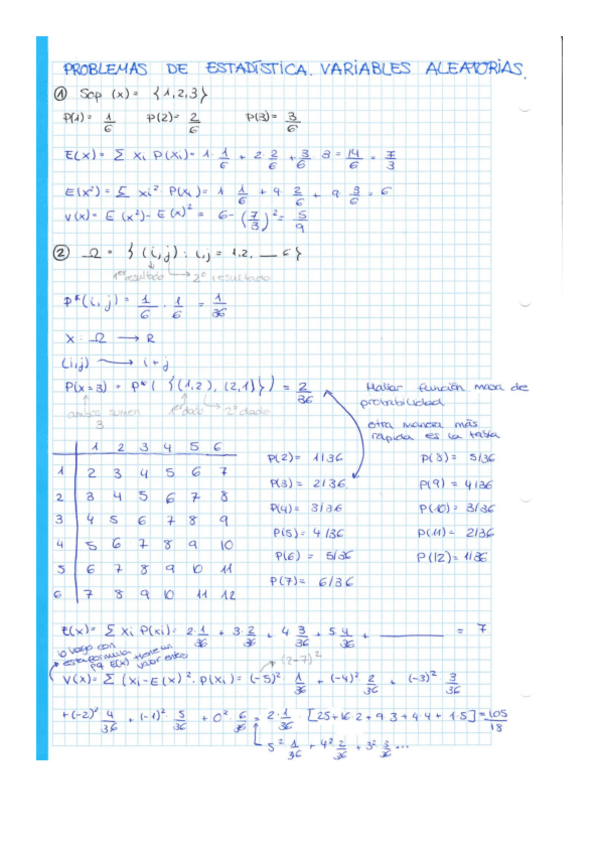 PROBLEMAS DE ESTADÍSTICA. VARIABLES ALEATORIAS.
① Sop (x) = {1,2,3}
P(1) = 1/6 P(2) = 2/6 P(3) = 3/6
E(x) = Σ xi P(xi) = 1 · 1/6 + 2 2/6 + 3/6 3 = 14/6 = 7/3
E(x²) = Σ xi² P(xi) = 1 1/6 + 4 2/6 + 9 3/6 = 6
V(x) = E(x²) - E(x)² = 6 - (7/3)² = 5/9
② Ω = {(i,j) : i,j = 1,2, __ 6}
1er resultado 2º resultado
P*(i,j) = 1/6 · 1/6 = 1/36
X : Ω → R
(i,j) → i + j
P(x=3) = P*({(1,2), (2,1)}) = 2/36
ambos sumen 3 1er dado 2º dado
Hallar función masa de
probabilidad
otra manera más
rápida es la tabla
1 2 3 4 5 6
1 2 3 4 5 6 7
2 3 4 5 6 7 8
3 4 5 6 7 8 9
4 5 6 7 8 9 10
5 6 7 8 9 10 11
6 7 8 9 10 11 12
P(2) = 1/36 P(3) = 5/36
P(3) = 2/36 P(9) = 4/36
P(4) = 3/36 P(10) = 3/36
P(5) = 4/36 P(11) = 2/36
P(6) = 5/36 P(12) = 1/36
P(7) = 6/36
E(x) = Σ xi P(xi) = 2 · 1/36 + 3 · 2/36 + 4 3/36 + 5 4/36 + ____ = 7
lo hago con
esta formula
pq E(x) tiene un
valor entero
(2-7)²
V(x) = Σ (xi - E(x))² · P(xi) = (-5)² · 1/36 + (-4)² 2/36 + (-3)² 3/36
+ (-2)² 4/36 + (-1)² 5/36 + 0² · 6/36 = 2 · 1/36 · [25 + 16·2 + 9·3 + 4·4 + 1·5] = 105/18
5² 1/36 + 4² 2/36 + 3² 3/36 ...